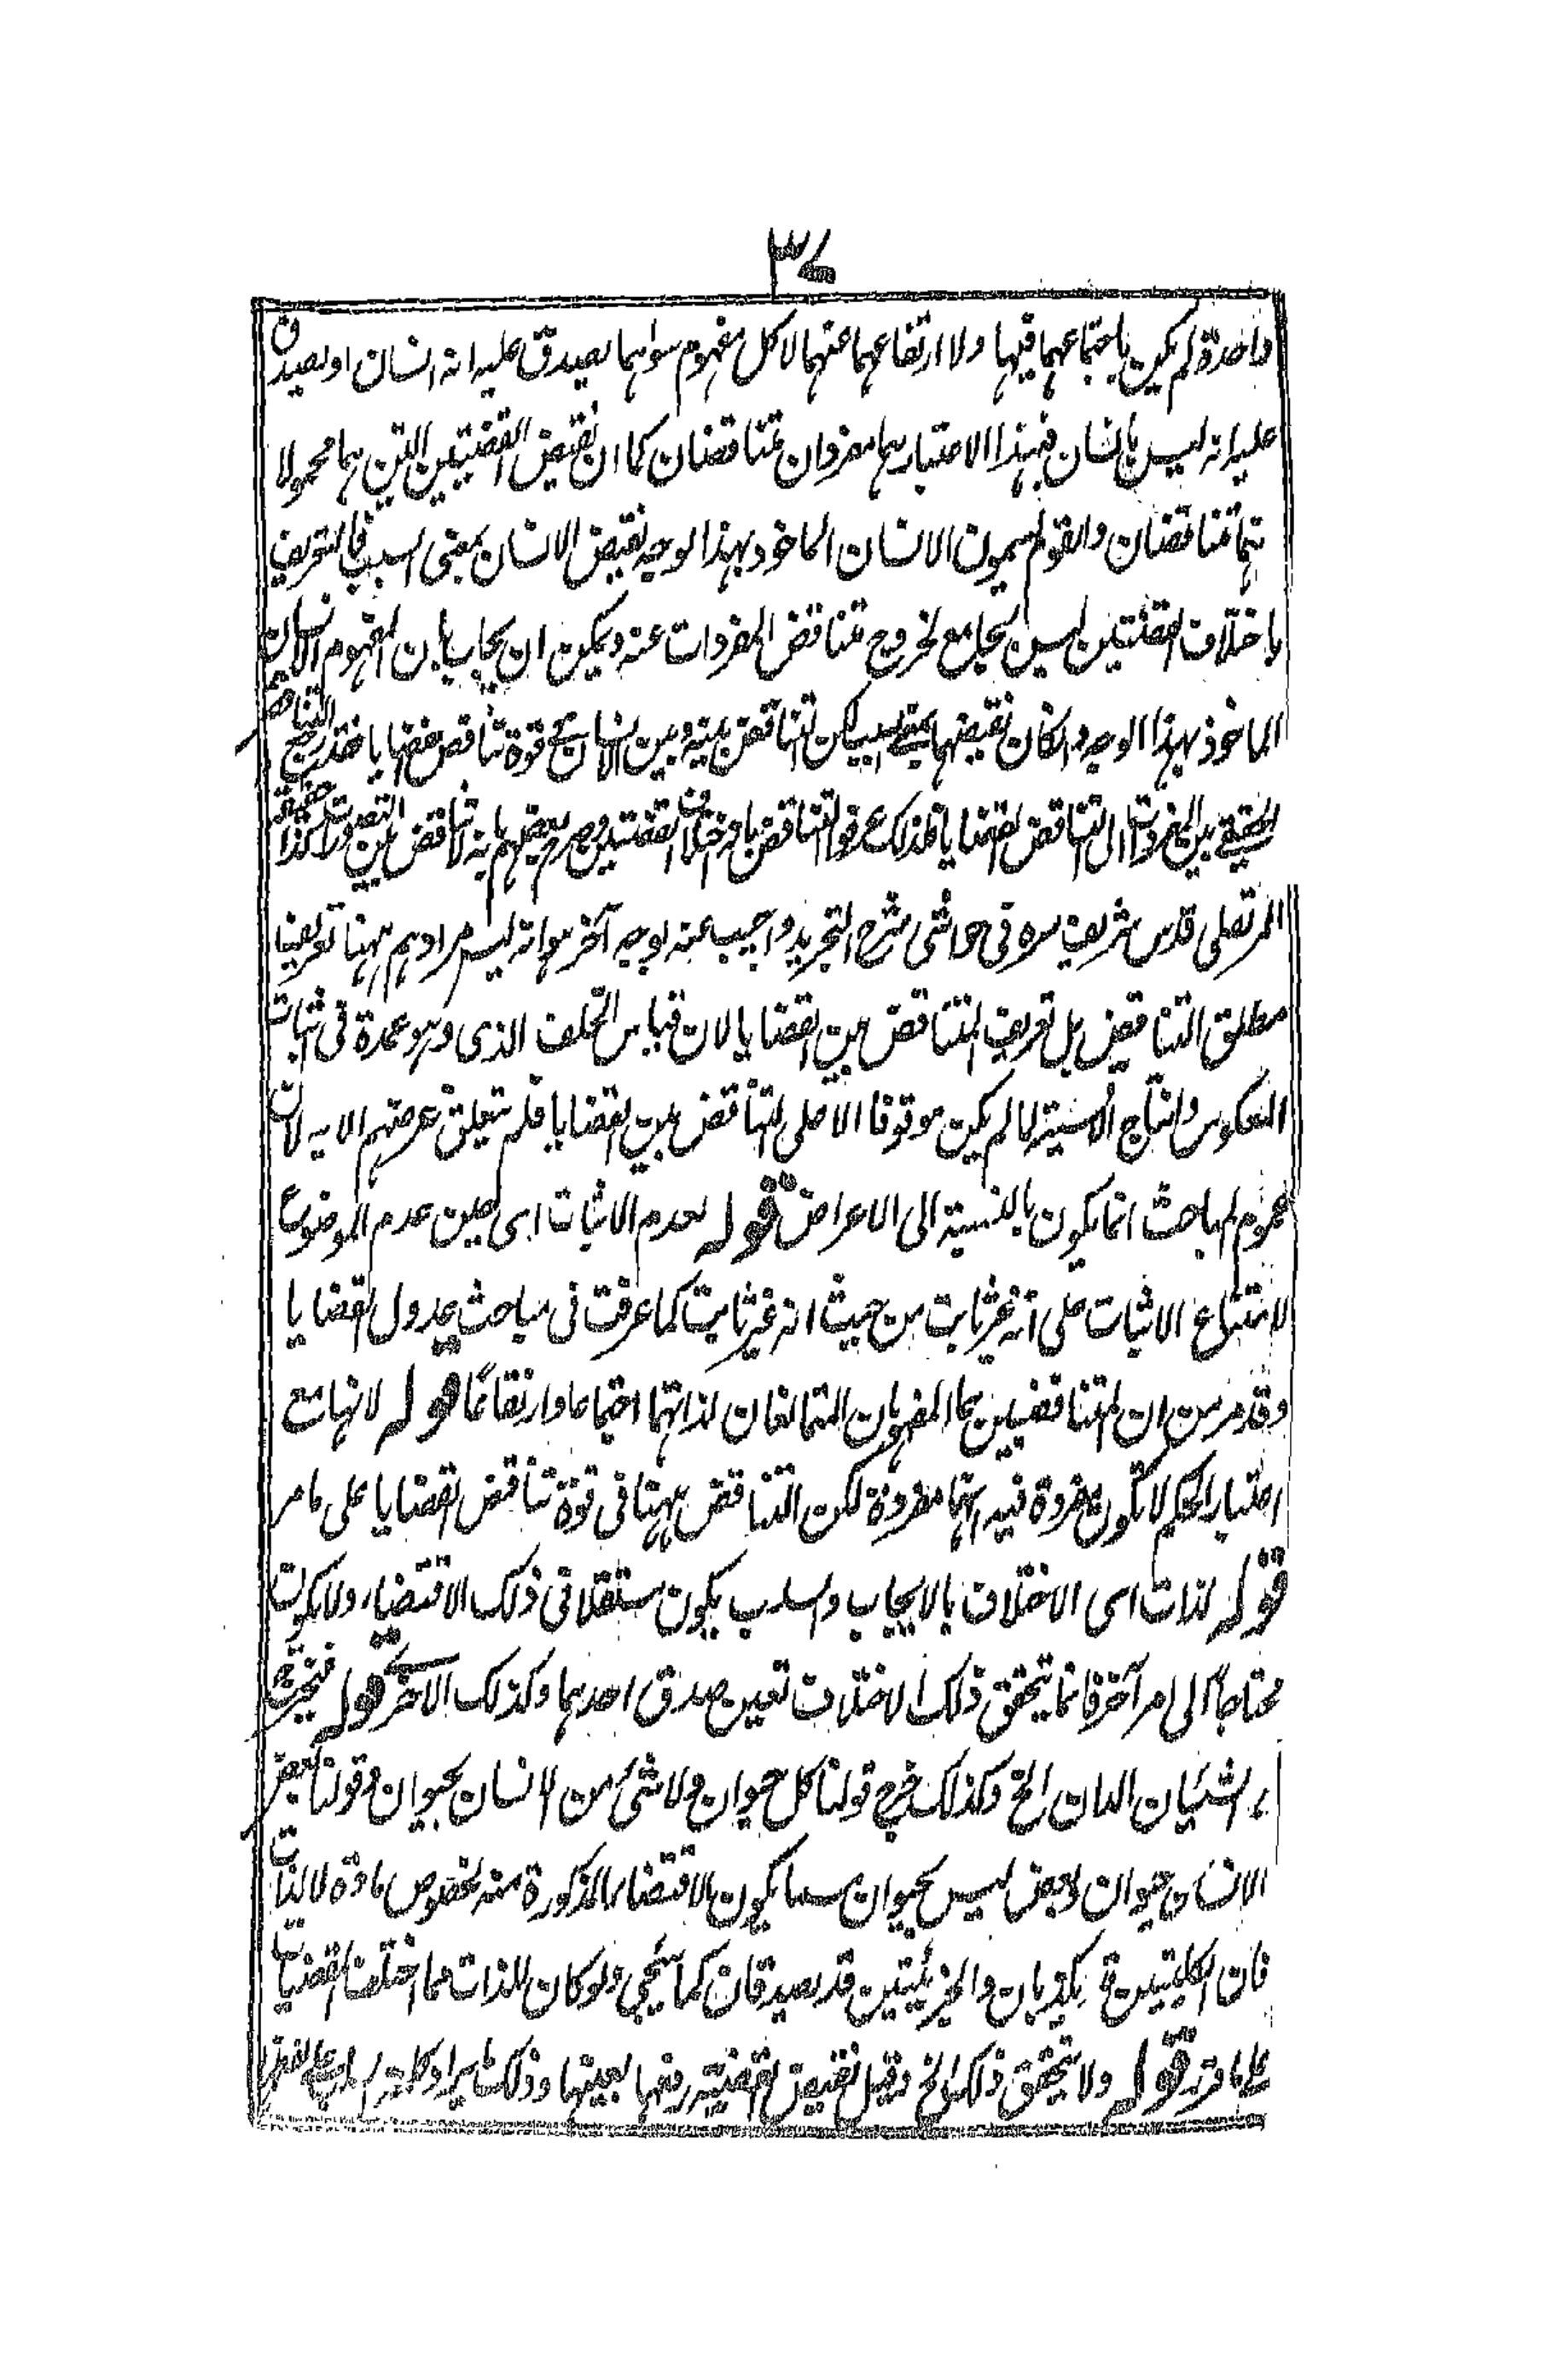 ٣٧
واحدة لم يكن باجتماعهما فيها ولا ارتفاعهما عنها لا كل مفهوم سواهما يصدق عليه انه انسان او يصدق
عليه انه ليس بانسان فبهذا الاعتبار هما مفردان متناقضان كما ان نقيض القضيتين اللتين هما محمولا
هما متناقضان والقوم يسمون الانسان الماخوذ بهذا الوجه نقيض الانسان بمعنى السلب فالتعريف
باختلاف القضيتين ليس بجامع لخروج تناقض المفردات عنه ويمكن ان يجاب بان المفهوم الانسان
الماخوذ بهذا الوجه وان كان نقيضها بمعنى السلب لكن التناقض بينه وبين الانسان في قوة تناقض القضايا
الحقيقي بين المفردات الى التناقض القضايا فلذلك عرفوا التناقض باختلاف القضيتين وصرح بعضهم بانه لا تناقض بين التصورات كذا
المرتضى قدس شريف سره في حواشي شرح التجريد واجيب عنه بوجه آخر هو انه ليس مرادهم ههنا تعريف
مطلق التناقض بل تعريف التناقض بين القضايا لان قياس الخلف الذي هو عمدة في اثبات
العكوس وانتاج الاقيسة لما لم يكن موقوفا الا على التناقض بين القضايا فلم يتعلق غرضهم الا به لان
عموم المباحث انما يكون بالنسبة الى الاعراض قوله لعدم الاثبات اى حين عدم الموضوع
لامتناع الاثبات على انه غير ثابت من حيث انه غير ثابت كما عرفت في مباحث عدول القضايا
وقد مر من ان المتناقضين هما المفهومان المتمانعان لذاتهما اجتماعا وارتفاعا قوله لانها مع
اعتبار الحكم لا تكون مفردة فيه انها مفردة لكن التناقض ههنا في قوة تناقض القضايا على ما مر
قوله لذات اى الاختلاف بالايجاب والسلب يكون مستقلا في ذلك الاقتضاء ولا يكون
محتاجا الى امر آخر فانما يتحقق ذلك الاختلاف تعين صدق احدهما وكذلك الآخر قوله فيخرج
الشيئان اللذان الخ وكذلك خرج قولنا كل حيوان ولا شئ من الانسان بحيوان وقولنا بعض
الانسان حيوان وبعض ليس بحيوان يكون الاقتضاء المذكورة منه لخصوص مادة لا لذات
فان الكليتين قد يكذبان والجزئيتين قد يصدقان كما سيجئ ولو كان للذات لما اختلف القضيات
على ما قرر قوله ولا يتحقق ذلك الخ وقيل نقيض القضية رفعها بعينها وذلك بايراد كلمة السلب على لفظها